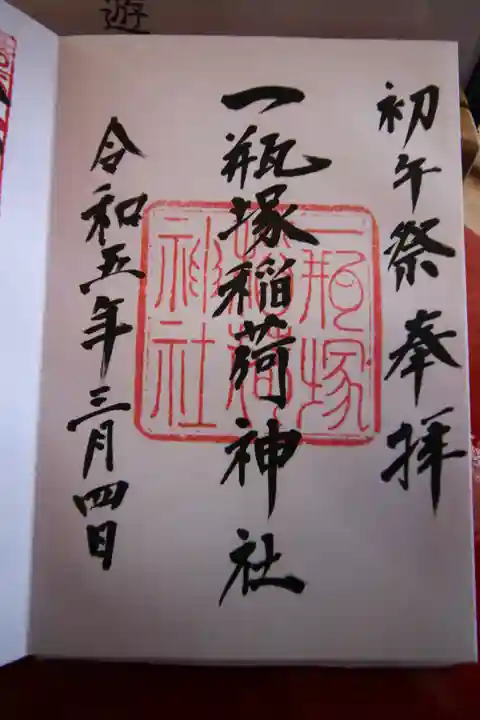 遊
初午祭奉拝
一瓶塚稲荷神社
一瓶塚
稲荷
神社
令和五年三月四日